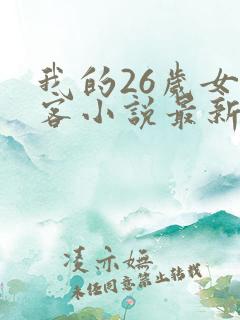 我的26歲女
客小說最新
凌亦嫵
未经同意禁止转载